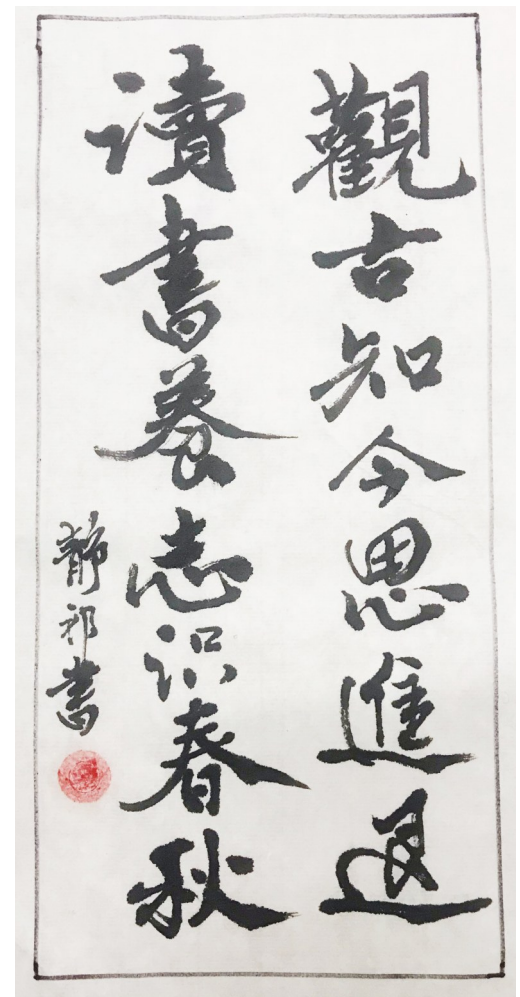 觀古知今思進退
讀書養志识春秋
靜祁書